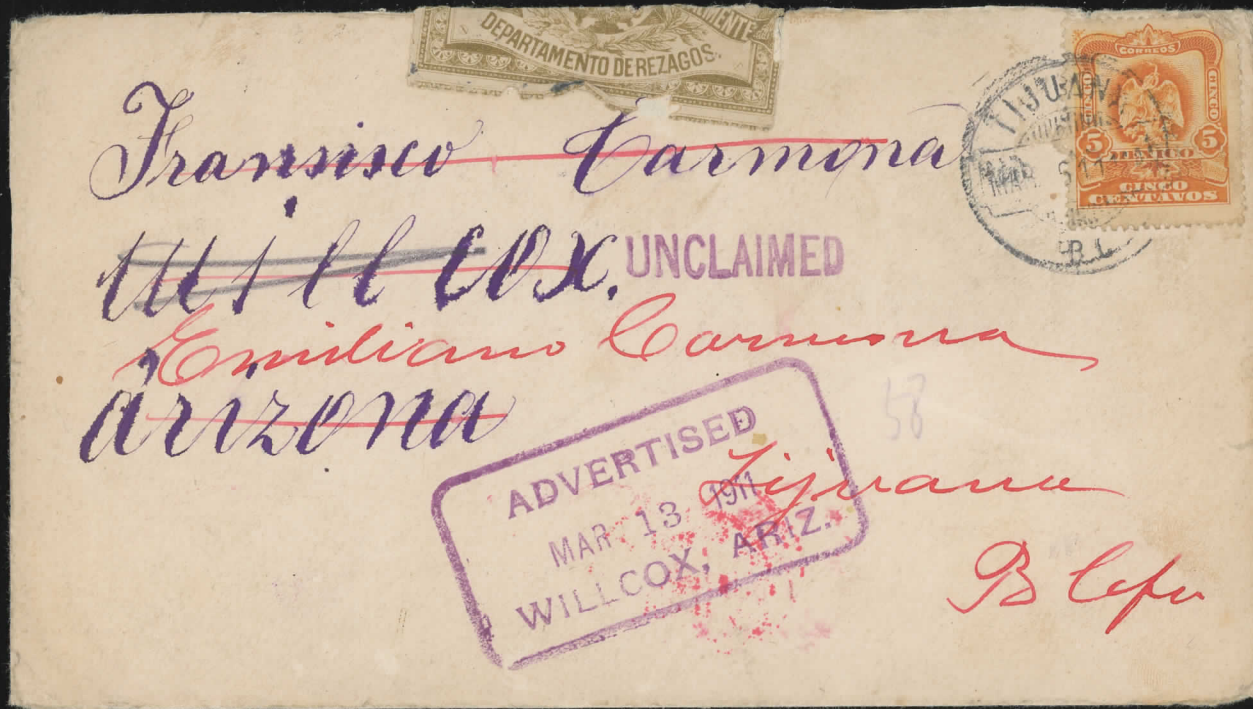 DEPARTAMENTO DE REZAGOS.
CORREOS
CINCO
CINCO
5 5
MEXICO
CINCO
CENTAVOS
TIJUANA
MAR 6 11
B.C.
Fransisco Carmona
Willcox.
UNCLAIMED
Emidiano Carmona
arizona
58
ADVERTISED
MAR 13 1911
WILLCOX, ARIZ.
Tijuana
B Cfa